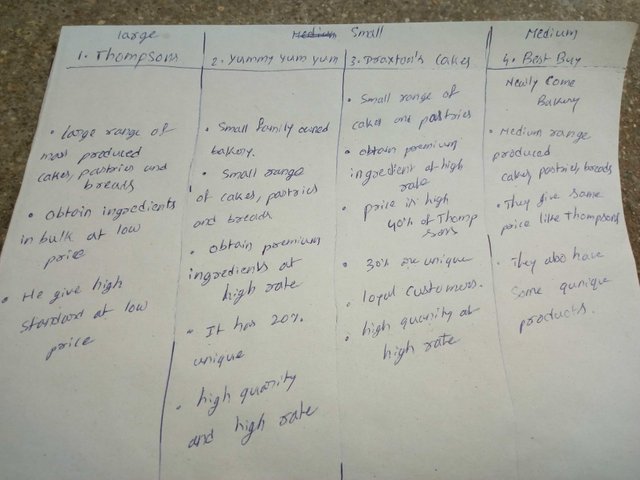 large
1. Thompsons
• large range of
mass produced
cakes, pastries and
breads
• Obtain ingredients
in bulk at low
price
• He give high
standard at low
price
Medium Small
2. Yummy yum yum
• Small family owned
bakery.
• Small range
of cakes, pastries
and breads
• Obtain premium
ingredients at
high rate
• It has 20%
unique
• high quanity
and high rate
3. Praxton's Cakes
• Small range of
cakes and pastries
• obtain premium
ingredient at high
rate
• price is high
40% of Thomp
sons
• 30% are unique
• loyal customers.
• high quanity at
high rate
Medium
4. Best Buy
Newly Come
Bakery
• Medium range
produced
cakes, pastries, breads
• They give same
price like Thompsons
• They also have
some qunique
products.